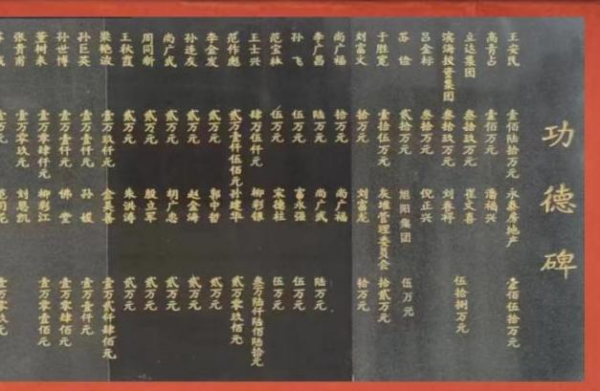 功德碑
王安民 壹佰陆拾万元 永泰房地产 壹佰伍拾万元
高青占 壹佰万元 潘福兴
立达集团 叁拾玖万元 崔文喜
滨海投资集团 叁拾玖万元 刘春祥 伍拾捌万元
吕金标 叁拾万元 倪正兴
苏俭 贰拾万元 旭阳集团 伍万元
于胜宽 壹拾伍万元 灰堆管理委员会 拾贰万元
刘富文 拾万元 刘富龙 拾万元
尚广福 拾万元 尚广福
李广昌 陆万元 尚广武 陆万元
孙飞 伍万元 富永强 伍万元
范宝林 伍万元 宋德柱 伍万元
王士兴 肆万伍仟元 柳彩银 叁万陆仟陆佰陆拾元
范作彪 贰万壹仟伍佰元 建华 贰万零玖佰元
李金发 贰万元 郭中哲 贰万元
孙连友 贰万元 赵金海 贰万元
尚广武 贰万元 胡广忠 贰万元
周同新 贰万元 殷立军 贰万元
王秋霞 贰万元 朱洪涛 贰万元
梁艳波 壹万玖仟元 金玉善 壹万贰仟肆佰元
孙巨英 壹万壹仟元 孙媛 壹万壹仟元
孙世博 壹万壹仟元 佛堂 壹万零肆佰元
董树来 壹万零肆仟元 柳彩江 壹万零壹佰元
张贵甫 壹万零玖元 刘恩凯 壹万零玖元